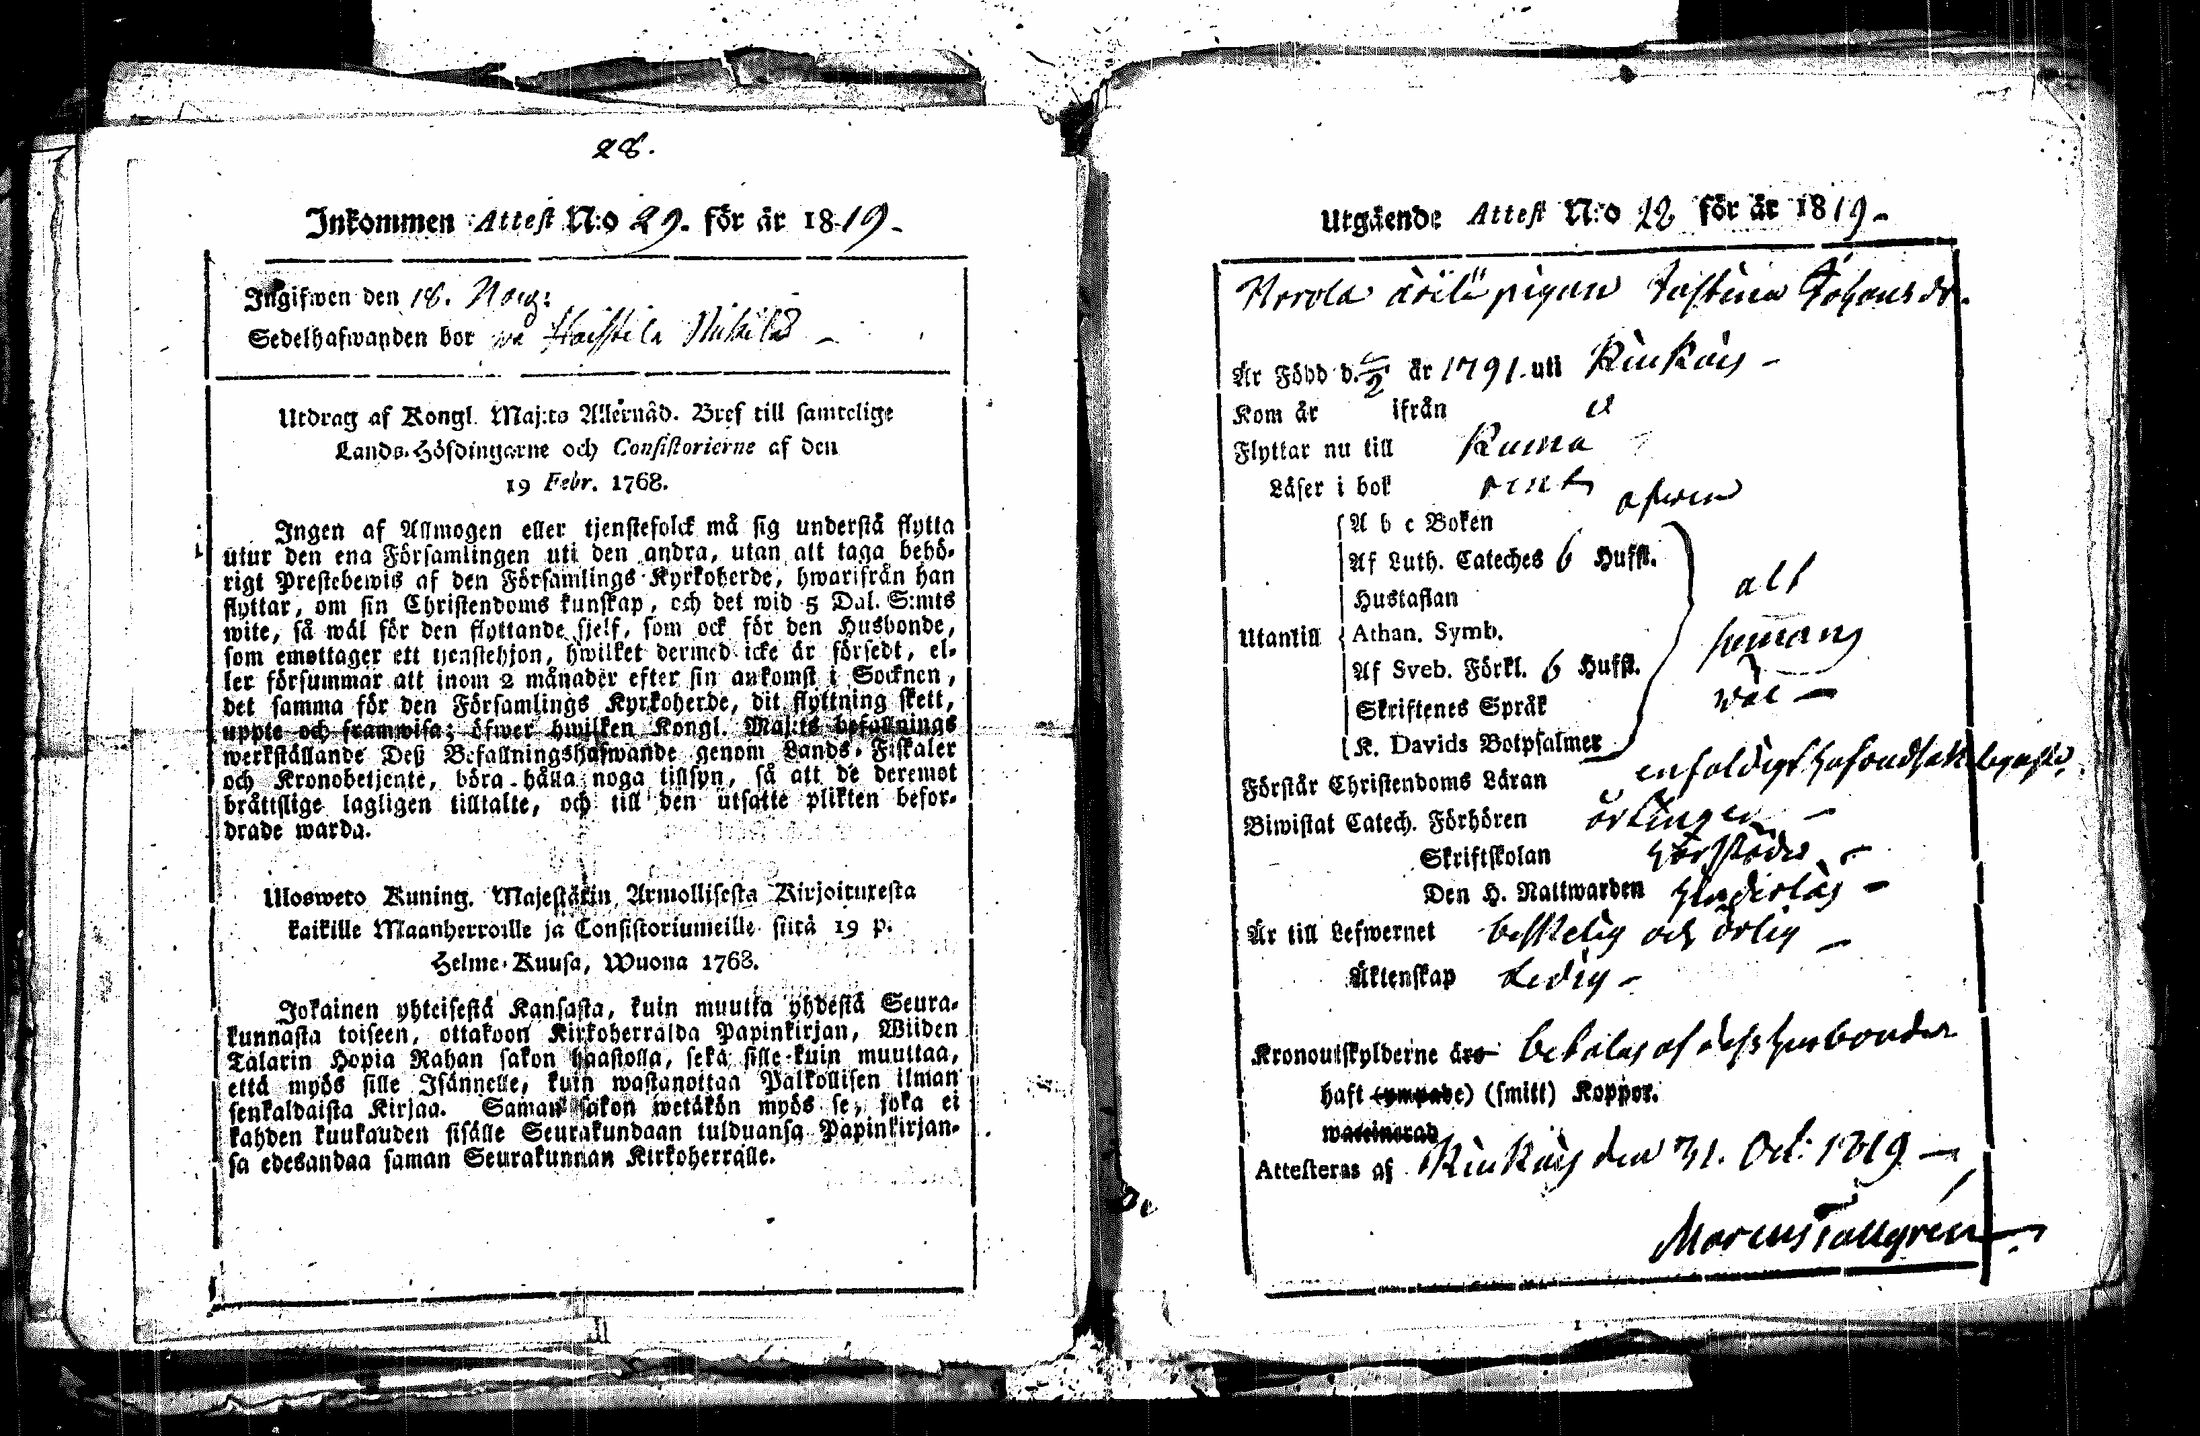 28.
Inkommen Attest N:o 29. för år 1819.
Ingifwen den 18. Nov:
Sedelhafwanden bor på Haistila Nikkilä
Utdrag af Kongl. Maj:ts Allernåd. Bref till samtelige
Lands-Höfdingarne och Consistorierne af den
19 Febr. 1768.
Ingen af Allmogen eller tjenstefolck må sig understå flytta
utur den ena Församlingen uti den andra, utan att taga behö-
rigt Prestebewis af den Församlings Kyrkoherde, hwarifrån han
flyttar, om sin Christendoms kunskap, och det wid 5 Dal. S:mts
wite, så wäl för den flyttande sjelf, som ock för den Husbonde,
som emottager ett tjenstehjon, hwilket dermed icke är försedt, el-
ler försummar att inom 2 månader efter sin ankomst i Socknen,
det samma för den Församlings Kyrkoherde, dit flyttning skett,
uppte och framwisa; öfwer hwilken Kongl. Maj:ts befallnings
werkställande Deß Befallningshafwande genom Lands-Fiskaler
och Kronobetjente, böra hålla noga tillsyn, så att de deremot
bråttslige lagligen tilltalte, och till den utsatte plikten befor-
drade warda.
Ulosweto Kuning. Majestätin Armollisesta Kirjoituxesta
kaikille Maanherroille ja Consistoriumeille siitä 19 p.
Helme-Kuusa, Wuona 1768.
Jokainen yhteisestä Kansasta, kuin muutta yhdestä Seura-
kunnasta toiseen, ottakoon Kirkoherralda Papinkirjan, Wiiden
Talarin Hopia Rahan sakon haastolla, sekä sille kuin muuttaa,
että myös sille Isännelle, kuin wastanottaa Palkollisen ilman
senkaldaista Kirjaa. Saman sakon wetäkön myös se, joka ei
kahden kuukauden sisälle Seurakundaan tulduansa Papinkirjan-
sa edesandaa saman Seurakunnan Kirkoherralle.
Utgående Attest N:o 28 för år 1819
pigan Justina Johansdr.
Är Född d. år 1791. uti Kiukais
Kom år ifrån
Flyttar nu till
Läser i bok rent
A b c Boken
Af Luth. Cateches 6 Hufst.
Hustaflan
Utantill Athan. Symb.
Af Sveb. Förkl. 6 Hufst.
Skriftenes Språk
K. Davids Botpsalmer
alt
wäl
Förstår Christendoms Läran
Biwistat Catech. Förhören
Skriftskolan
Den H. Nattwarden
Är till Lefwernet beskelig och ärlig
Äktenskap Ledig
Kronoutskylderne äro betalas af dess husbonder
haft (ympade) (smitt) Koppor.
waccinerad
Attesteras af Kiukais den 31. Oct: 1819
Marcus Tallgren